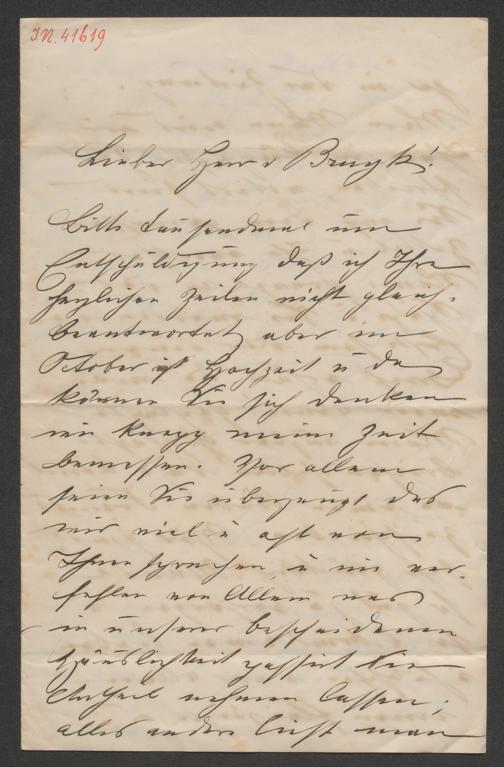 I.N. 41619
Lieber Herr v Bruyk!
Bitte tausendmal um
Entschuldigung daß ich Ihre
herzlichen Zeilen nicht gleich
beantwortet, aber im
October ist Hochzeit u da
können Sie sich denken
wie knapp meine Zeit
bemessen. Vor allem
seien Sie überzeugt das
wir viel u oft von
Ihnen sprechen u nie ver-
fehlen von Allem was
in unserer bescheidenen
Häuslichkeit passirt Sie
Antheil nehmen lassen;
alles andere liest man